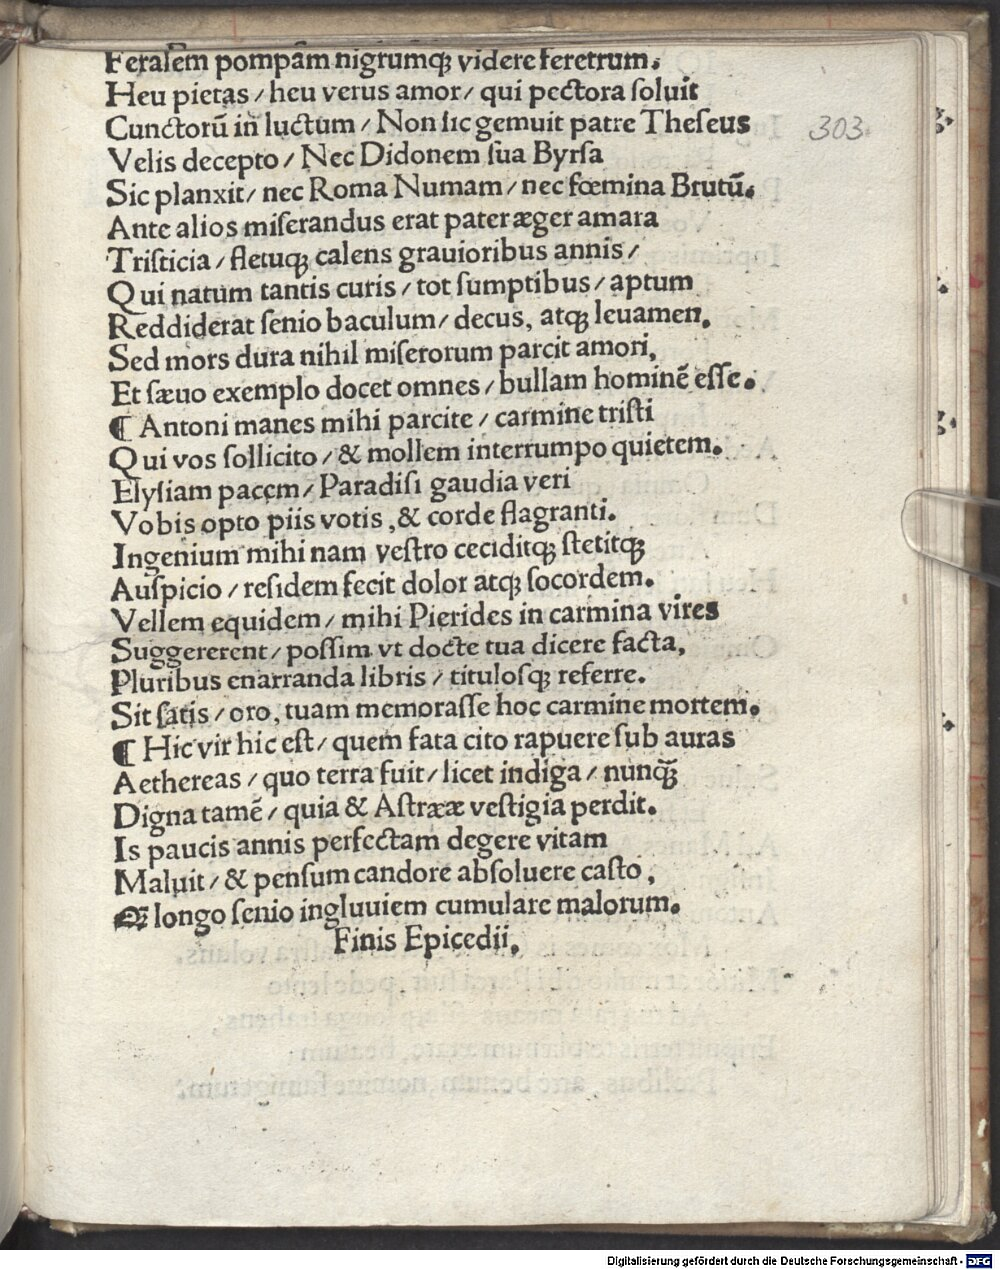 Feralem pompam nigrumqꝫ videre feretrum.
Heu pietas / heu verus amor / qui pectora soluit
Cunctorū in luctum / Non sic gemuit patre Theseus
303
Velis decepto / Nec Didonem sua Byrsa
Sic planxit / nec Roma Numam / nec fœmina Brutū.
Ante alios miserandus erat pater æger amara
Tristicia / fletuqꝫ calens grauioribus annis /
Qui natum tantis curis / tot sumptibus / aptum
Reddiderat senio baculum / decus, atqꝫ leuamen.
Sed mors dura nihil miserorum parcit amori,
Et sæuo exemplo docet omnes / bullam hominē esse.
¶ Antoni manes mihi parcite / carmine tristi
Qui vos sollicito / & mollem interrumpo quietem.
Elysiam pacem / Paradisi gaudia veri
Vobis opto piis votis ,& corde flagranti.
Ingenium mihi nam vestro ceciditqꝫ stetitqꝫ
Auspicio / residem fecit dolor atqꝫ socordem.
Vellem equidem / mihi Pierides in carmina vires
Suggererent / possim vt docte tua dicere facta,
Pluribus enarranda libris / titulosqꝫ referre.
Sit satis / oro, tuam memorasse hoc carmine mortem.
¶ Hic vir hic est / quem fata cito rapuere sub auras
Aethereas / quo terra fuit / licet indiga / nunqꝫ̄
Digna tamē / quia & Astrææ vestigia perdit.
Is paucis annis perfectam degere vitam
Maluit / & pensum candore absoluere casto ,
longo senio ingluuiem cumulare malorum.
Finis Epicedii.
Digitalisierung gefördert durch die Deutsche Forschungsgemeinschaft - DFG